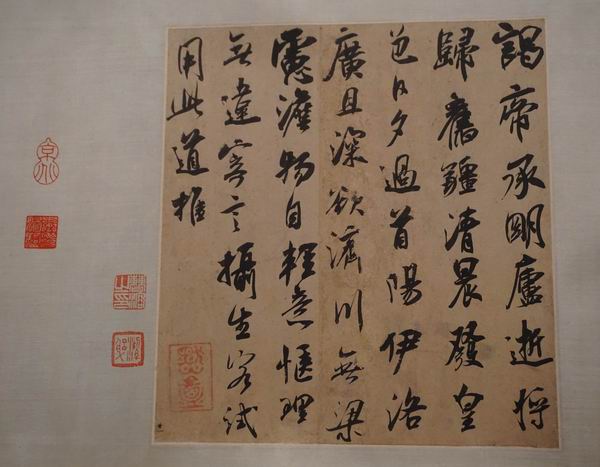 謁帝承明廬逝将
歸舊疆清晨發皇
邑日夕過首陽伊洛
廣且深欲濟川無梁
慮澹物自輕意愜理
無違寄言攝生客試
用此道推